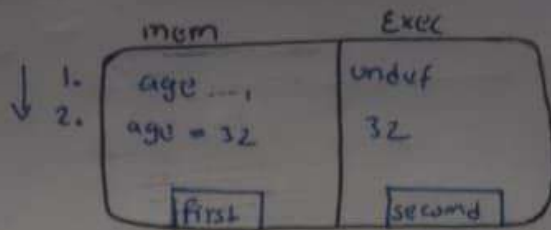 mem Exec
1. age ...., undef
2. age = 32 32
first second